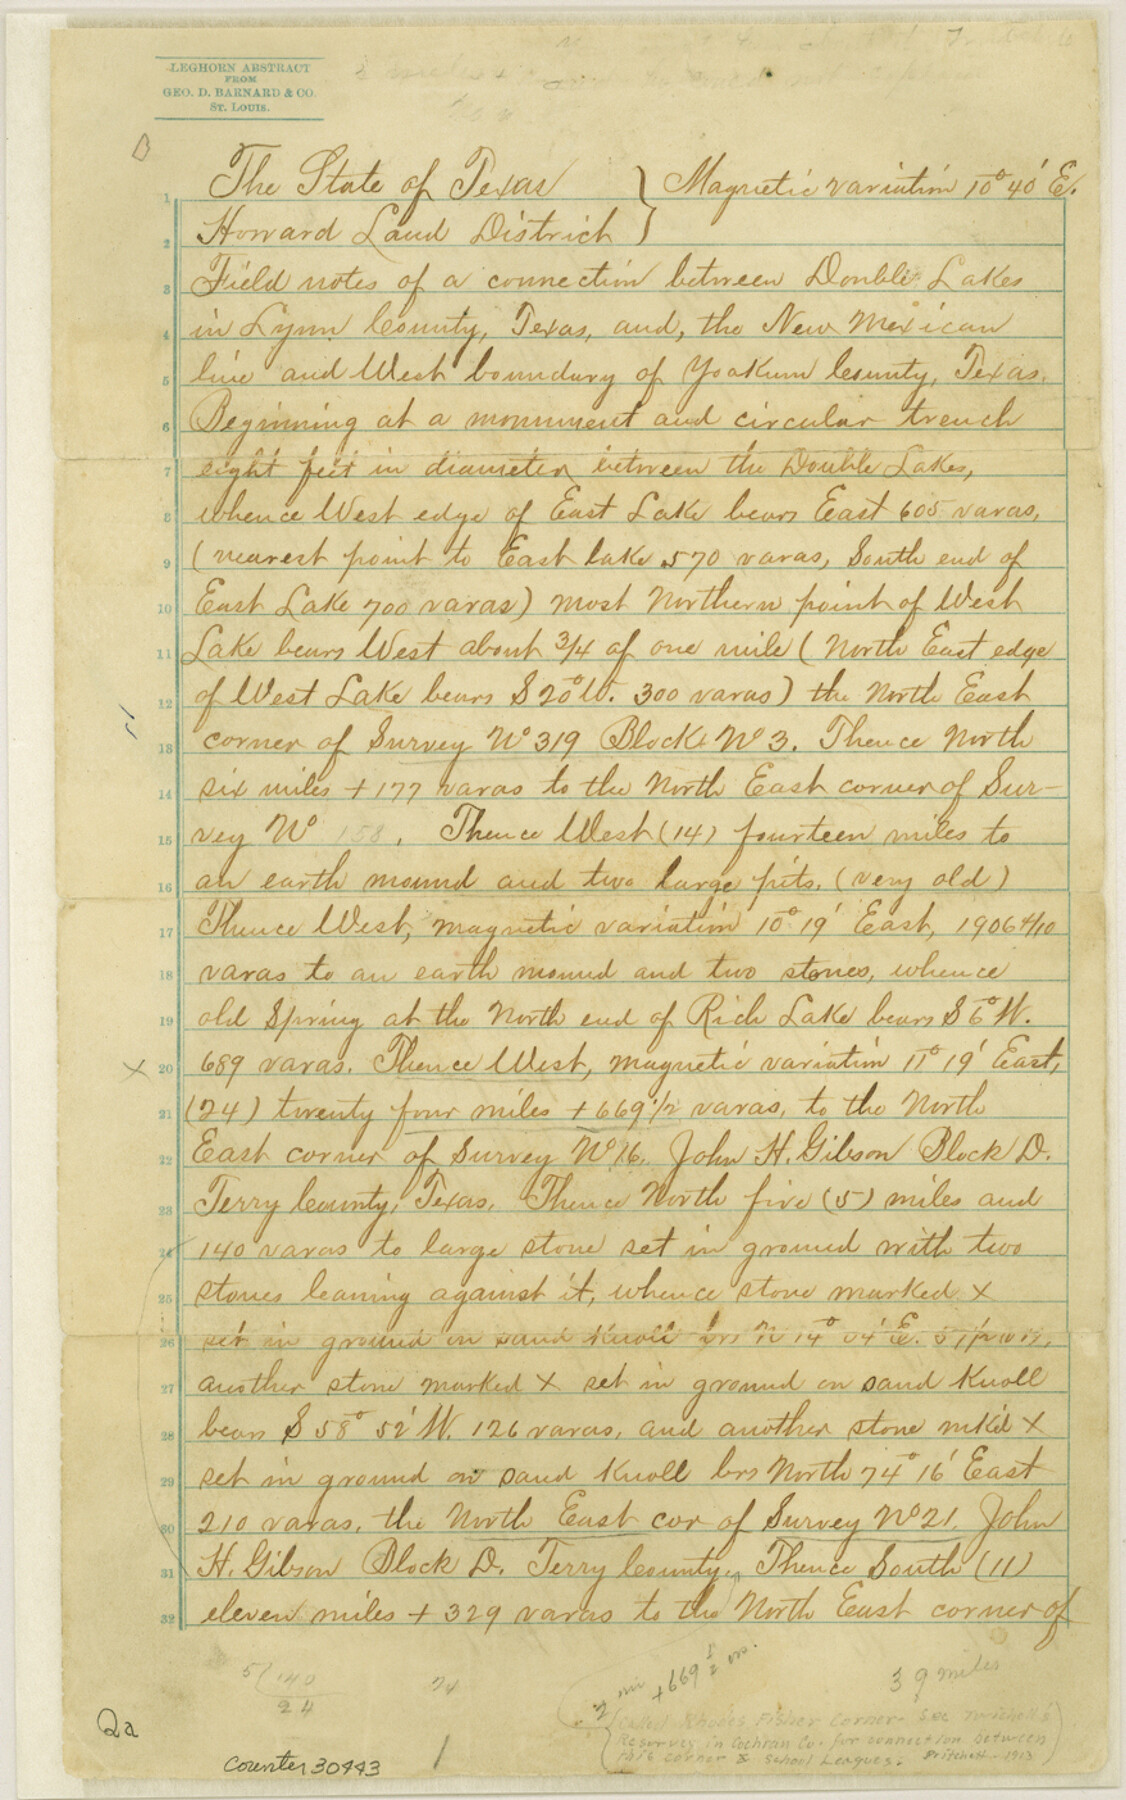 LEGHORN ABSTRACT
FROM
GEO. D. BARNARD & CO.
ST. LOUIS.
The State of Texas } Magnetic variation 10° 40' E.
Howard Land District }
Field notes of a connection between Double Lakes
in Lynn County, Texas, and, the New Mexican
line and West boundary of Yoakum County, Texas.
Beginning at a monument and circular trench
eight feet in diameter between the Double Lakes,
whence West edge of East Lake bears East 605 varas,
(nearest point to East lake 570 varas, South end of
East Lake 700 varas) most Northern point of West
Lake bears West about 3/4 of one mile (North East edge
of West Lake bears S 20° W. 300 varas) the North East
corner of Survey No 319 Block No 3. Thence North
six miles + 177 varas to the North East corner of Sur-
vey No 158. Thence West (14) fourteen miles to
an earth mound and two large pits. (very old)
Thence West, magnetic variation 10° 19' East, 1906 4/10
varas to an earth mound and two stones, whence
old Spring at the North end of Rich Lake bears S 6° W.
689 varas. Thence West, magnetic variation 11° 19' East,
(24) twenty four miles + 669 1/2 varas, to the North
East corner of Survey No 16, John H. Gibson Block D.
Terry County, Texas. Thence North five (5) miles and
140 varas to large stone set in ground with two
stones leaning against it, whence stone marked X
set in ground on sand knoll brs N 14° 04' E.
another stone marked X set in ground on sand knoll
bears S 58° 52' W. 126 varas, and another stone mk'd X
set in ground on sand knoll brs North 74° 16' East
210 varas, the North East cor of Survey No 21. John
H. Gibson Block D. Terry County. Thence South (11)
eleven miles + 329 varas to the North East corner of
1
2
3
4
5
6
7
8
9
10
11
12
13
14
15
16
17
18
19
20
21
22
23
24
25
26
27
28
29
30
31
32
5/140
24
24
mi
+669 1/2 vrs.
39 miles
(Called Rhodes Fisher Corner- See Twichell's
Resurvey in Cochran Co. for connection between
this corner & School Leagues. Pritchett-1913)
2a
Counter 30443
1